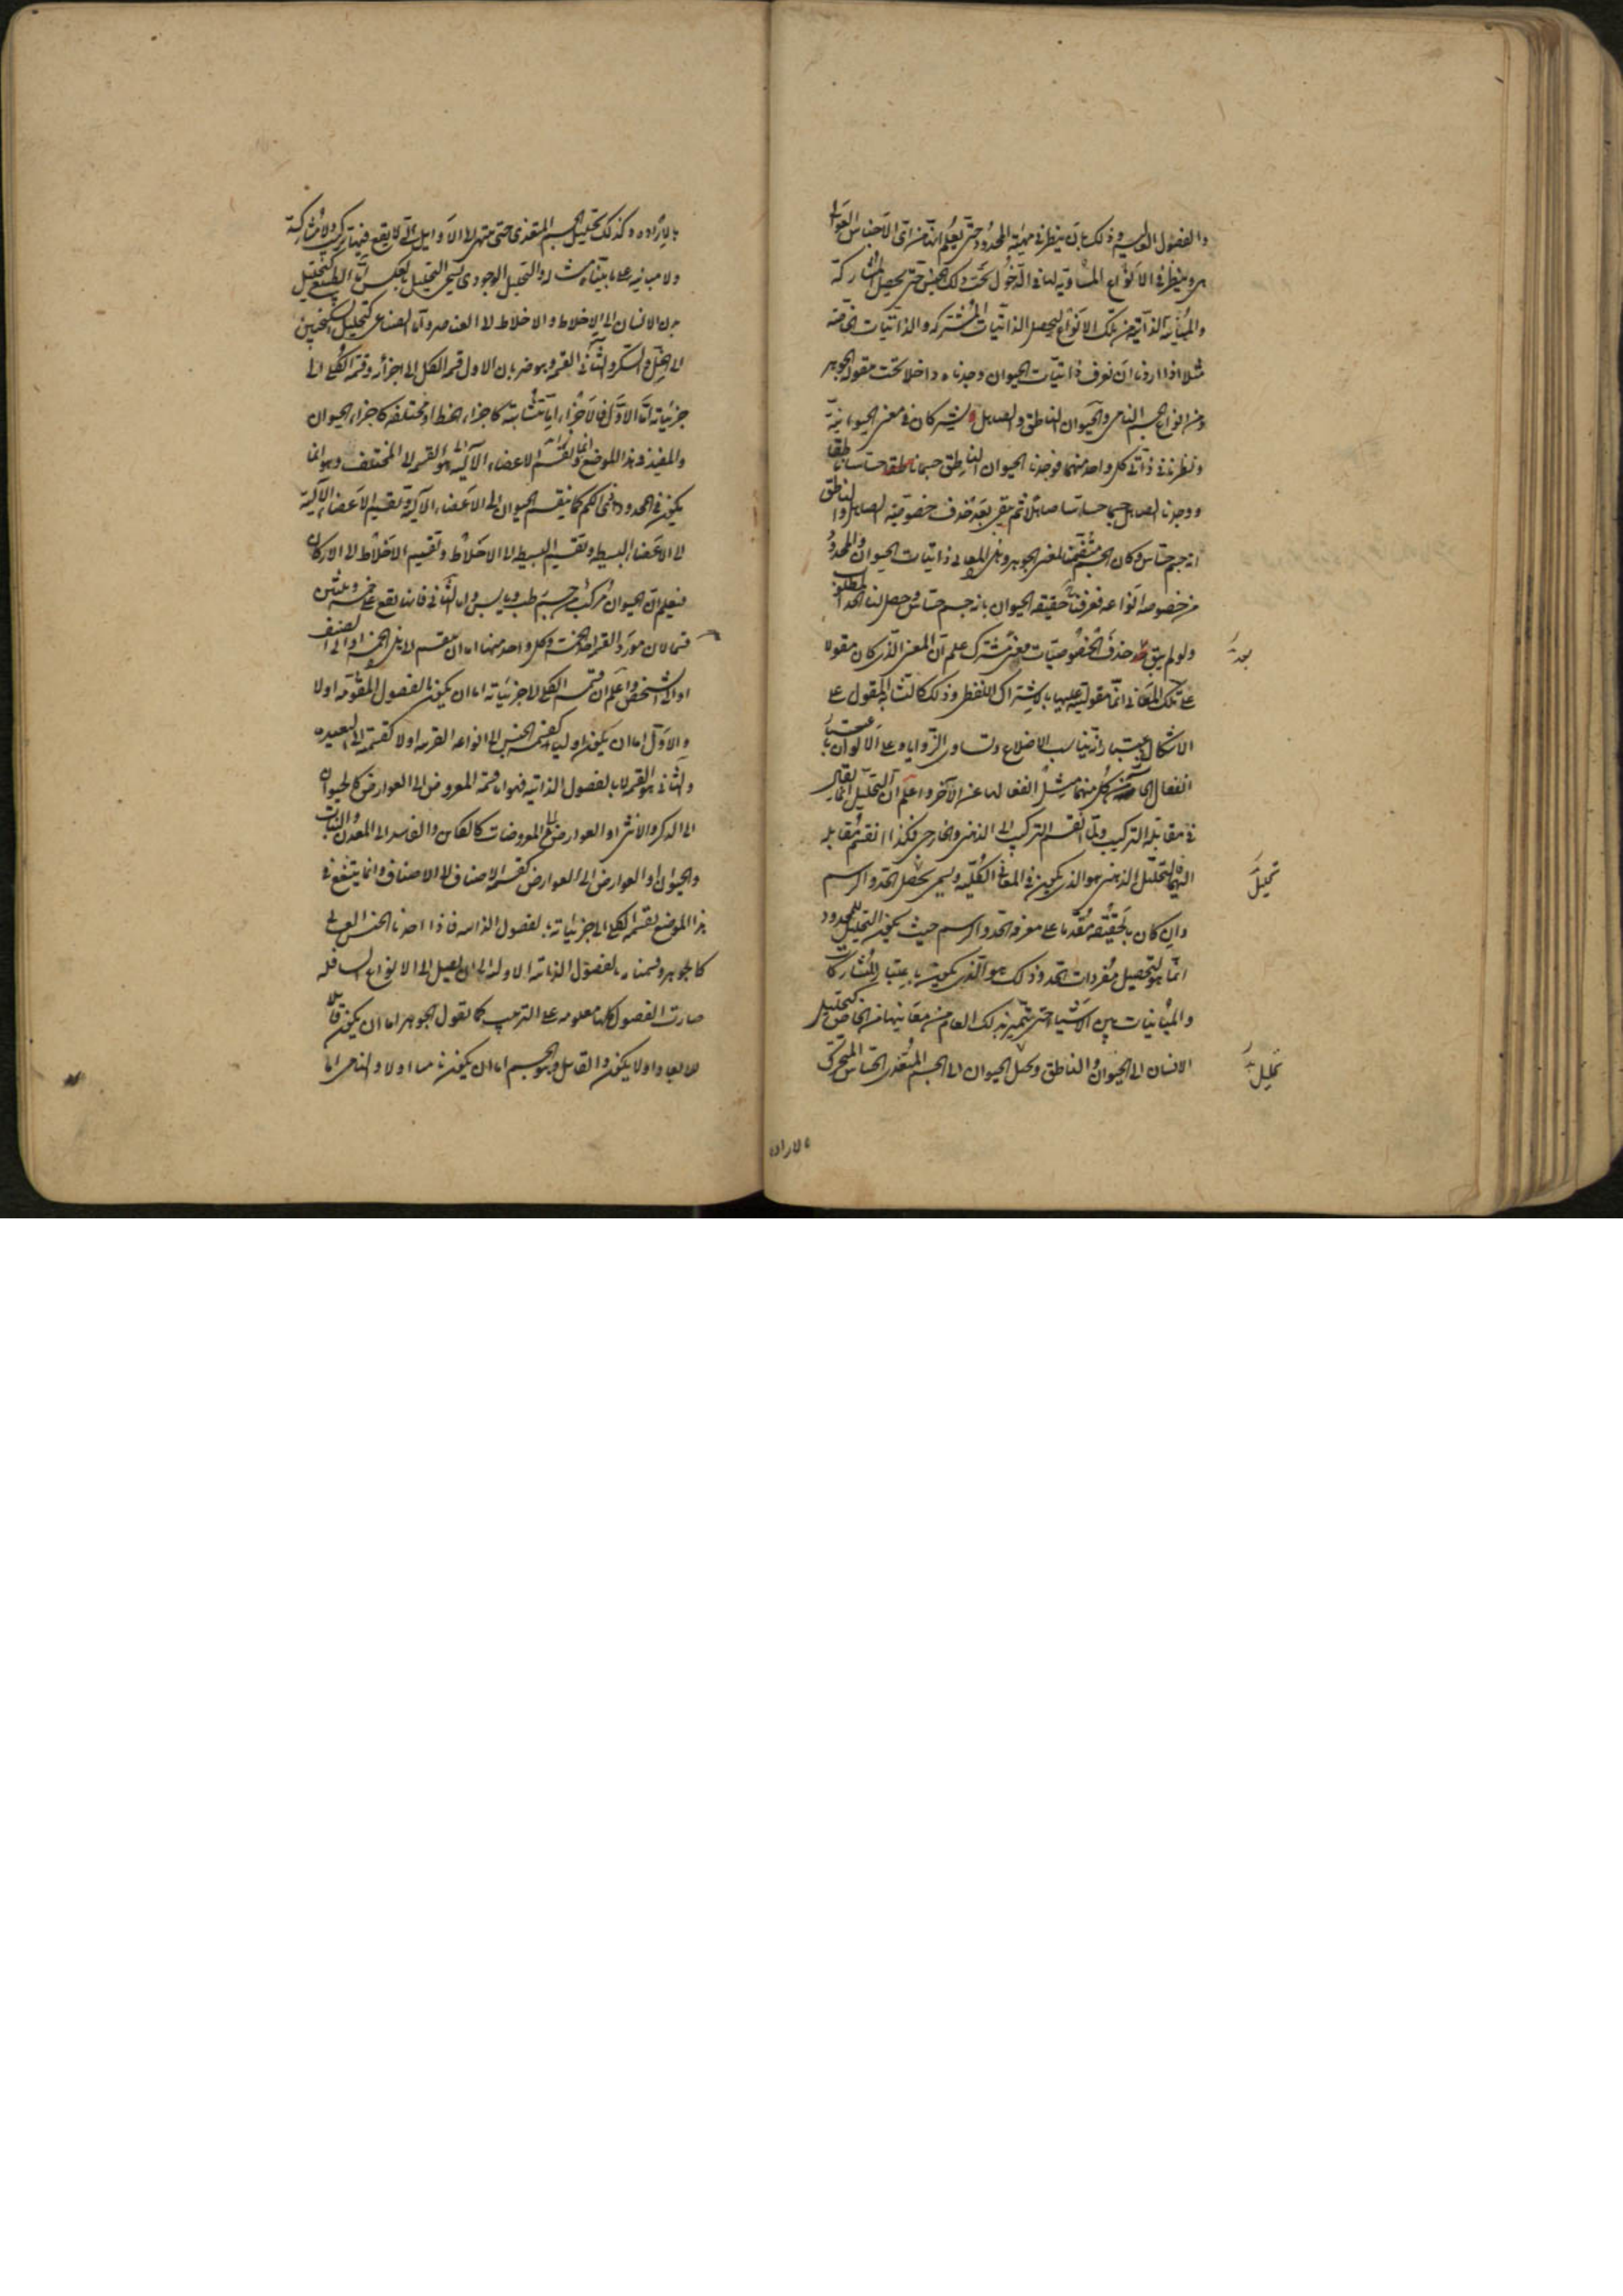 والفصول العالية وذلك بان ينظر في مهية المحدود حتى يعلم انها من اى الاجناس العوالى
هى وينظر في الانواع المساوية لها في الدخول تحت ذلك الجنس حتى يحصل المشاركة
والمباينة الذاتية من تلك الانواع ليحصل الذاتيات المشتركة والذاتيات الخاصة
مثلا اذا اردنا ان نعرف ذاتيات الحيوان وجدناه داخلا تحت مقولة الجوهر
ومن انواع الجسم النامى والحيوان الناطق والصاهل يشتركان في معنى الحيوانية
ونظرنا في ذاتى كل واحد منهما فوجدنا الحيوان الناطق جسما حساسا ناطقا
ووجدنا الصاهل جسما حساسا صاهلا ثم بقى بعد حذف خصوصية الصاهل والناطق
انه جسم حساس وكان الجسم متضمنا لمعنى الجوهر وهذه المعانى ذاتيات الحيوان والمحدود
من خصوصه انواعه فعرفنا حقيقة الحيوان بانه جسم حساس وحصل لنا الحد المطلوب
ولو لم يبق حذف الخصوصيات معنى مشترك علم ان المعنى الذى كان مقولا
بعد
على تلك المعانى انما مقوليته عليها بالاشتراك اللفظى وذلك كالتشابه المقول على
الاشكال باعتبار تناسب الاضلاع وتساوى الزوايا وعلى الالوان باعتبار
انفعال الحاسة من كل منهما مثل انفعالها عن الآخر واعلم ان التحليل انما يقال
في مقابلة التركيب ولما انقسم التركيب الى الذهنى والخارجى فكذا انقسم مقابله
اليهما التحليل الذهنى هو الذى يكون في المعانى الكلية وليس يحصل الحد والرسم
تحليل
وان كان بالحقيقة مقدما على معرفة الحد والرسم حيث يكون التحليل للمحدود
انما هو لتحصيل مفردات الحد وذلك هو الذى يكون باعتبار المشاركات
والمباينات بين الاشياء حتى يتميز بذلك العام من معانيها من الخاص كتحليل
الانسان الى الحيوان والناطق وتحليل الحيوان الى الجسم المتغذى الحساس المتحرك
تحليل
بالاراده
بالاراده وكذلك تحليل الجسم المتغذى حتى ينتهى الى الاوايل التى لا يقع فيها تركيب ولا مشاركة
ولا مباينة على ما بيناه والتحليل الوجودى يسمى التحليل بالعكس اما الطبيعى كتحليل
بدن الانسان الى الاخلاط والاخلاط الى العناصر واما الصناعى كتحليل السكنجبين
الى الخل والسكر والثانى القسمة وهو ضربان الاول قسمة الكل الى اجزائه وقسمة الكلى الى
جزئياته اما الاول فالاجزاء اما متشابهة كاجزاء الخط او مختلفة كاجزاء الحيوان
والمفيد في هذا الموضع انما هو القسمة الى المختلف وهو انما
يكون في المحدود ذى الكم كما ينقسم الحيوان الى الاعضاء الآلية وتقسيم الاعضاء الآلية
الى الاعضاء البسيطة وتقسيم البسيطة الى الاخلاط وتقسيم الاخلاط الى الاركان
فيعلم ان الحيوان مركب من جسم رطب ويابس واما الثانى فانما يقع على خمسة وعشرين
قسما لان مورد القسمة احد الخمسة وكل واحد منها اما ان ينقسم الى هذه الخمسة او الى الصنف
او الى الشخص واعلم ان قسمة الكلى الى جزئياته اما ان يكون بالفصول المقومة اولا
والاول اما ان يكون اوليا كقسمة الجنس الى انواعه القريبة اولا كقسمته الى البعيدة
والثانى هو القسمة لا بالفصول الذاتية فهو اما قسمة المعروض الى العوارض كالحيوان
الى الذكر والانثى او العوارض الى المعروضات كالكائن والفاسد الى المعدن والنبات
والحيوان او العوارض الى العوارض كقسمة الاصناف الى الاصناف وانما ينتفع في
هذا الموضع بقسمة الكلى الى جزئياته بالفصول الذاتية فاذا اخذنا الجنس العالى
كالجوهر وقسمناه بالفصول الذاتية الاولية الى ان يصل الى الانواع السافلة
صارت الفصول كلها معلومة على الترتيب كما نقول الجوهر اما ان يكون قابلا
للابعاد اولا يكون والقابل وهو الجسم اما ان يكون ناميا اولا والنامى اما